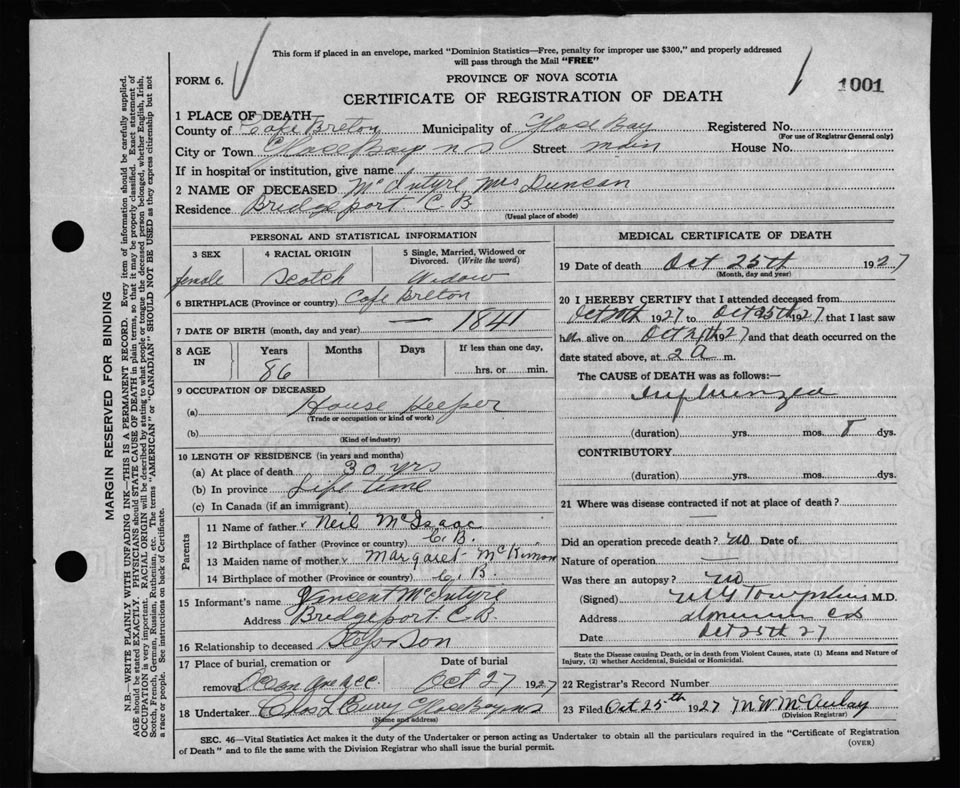 This form if placed in an envelope, marked "Dominion Statistics—Free, penalty for improper use $300," and properly addressed
will pass through the Mail "FREE"
FORM 6.
PROVINCE OF NOVA SCOTIA
1001
CERTIFICATE OF REGISTRATION OF DEATH
1 PLACE OF DEATH
County of Cape Breton Municipality of Glace Bay Registered No.
(For use of Registrar General only)
City or Town Glace Bay n s Street main House No.
If in hospital or institution, give name
2 NAME OF DECEASED McIntyre Mrs Duncan
Residence Bridgeport C B
(Usual place of abode)
PERSONAL AND STATISTICAL INFORMATION
3 SEX 4 RACIAL ORIGIN 5 Single, Married, Widowed or
Divorced. (Write the word)
female Scotch Widow
6 BIRTHPLACE (Province or country) Cape Breton
7 DATE OF BIRTH (month, day and year) — 1841
8 AGE IN Years Months Days If less than one day,
86 hrs. or min.
9 OCCUPATION OF DECEASED
(a) House Keeper
(Trade or occupation or kind of work)
(b)
(Kind of industry)
10 LENGTH OF RESIDENCE (in years and months)
(a) At place of death 30 yrs
(b) In province Life time
(c) In Canada (if an immigrant)
Parents
11 Name of father Neil McIsaac
12 Birthplace of father (Province or country) C.B.
13 Maiden name of mother Margaret McKinnon
14 Birthplace of mother (Province or country) C.B.
15 Informant's name Vincent McIntyre
Address Bridgeport C.B.
16 Relationship to deceased Step Son
17 Place of burial, cremation or Date of burial
removal Oct 27 1927
18 Undertaker Chas L Curry Glace Bay ns
(Name and address)
MEDICAL CERTIFICATE OF DEATH
19 Date of death Oct 25th 1927
(Month, day and year)
20 I HEREBY CERTIFY that I attended deceased from
1927 to Oct 25th 1927 that I last saw
her alive on 1927 and that death occurred on the
date stated above, at 2 A m.
The CAUSE of DEATH was as follows:—
Influenza
(duration) yrs. mos. 8 dys.
CONTRIBUTORY
(duration) yrs. mos. dys.
21 Where was disease contracted if not at place of death?
Did an operation precede death? no Date of
Nature of operation —
Was there an autopsy? no
(Signed) M.D.
Address Dominion C B
Date Oct 25th 27
State the Disease causing Death, or in death from Violent Causes, state (1) Means and Nature of
Injury, (2) whether Accidental, Suicidal or Homicidal.
22 Registrar's Record Number
23 Filed Oct 25th 1927 M W McAulay
(Division Registrar)
SEC. 46—Vital Statistics Act makes it the duty of the Undertaker or person acting as Undertaker to obtain all the particulars required in the "Certificate of Registration
of Death" and to file the same with the Division Registrar who shall issue the burial permit.
(OVER)
MARGIN RESERVED FOR BINDING
N.B.—WRITE PLAINLY WITH UNFADING INK—THIS IS A PERMANENT RECORD. Every item of information should be carefully supplied.
AGE should be stated EXACTLY. PHYSICIANS should STATE CAUSE OF DEATH in plain terms, so that it may be properly classified. Exact statement of
OCCUPATION is very important. RACIAL ORIGIN will be described by stating to what people or race the deceased person belonged, whether English, Irish,
Scotch, French, German, Russian, Ruthenian, etc. The terms "AMERICAN" or "CANADIAN" SHOULD NOT BE USED as they express citizenship but not
a race or people. See instructions on back of Certificate.